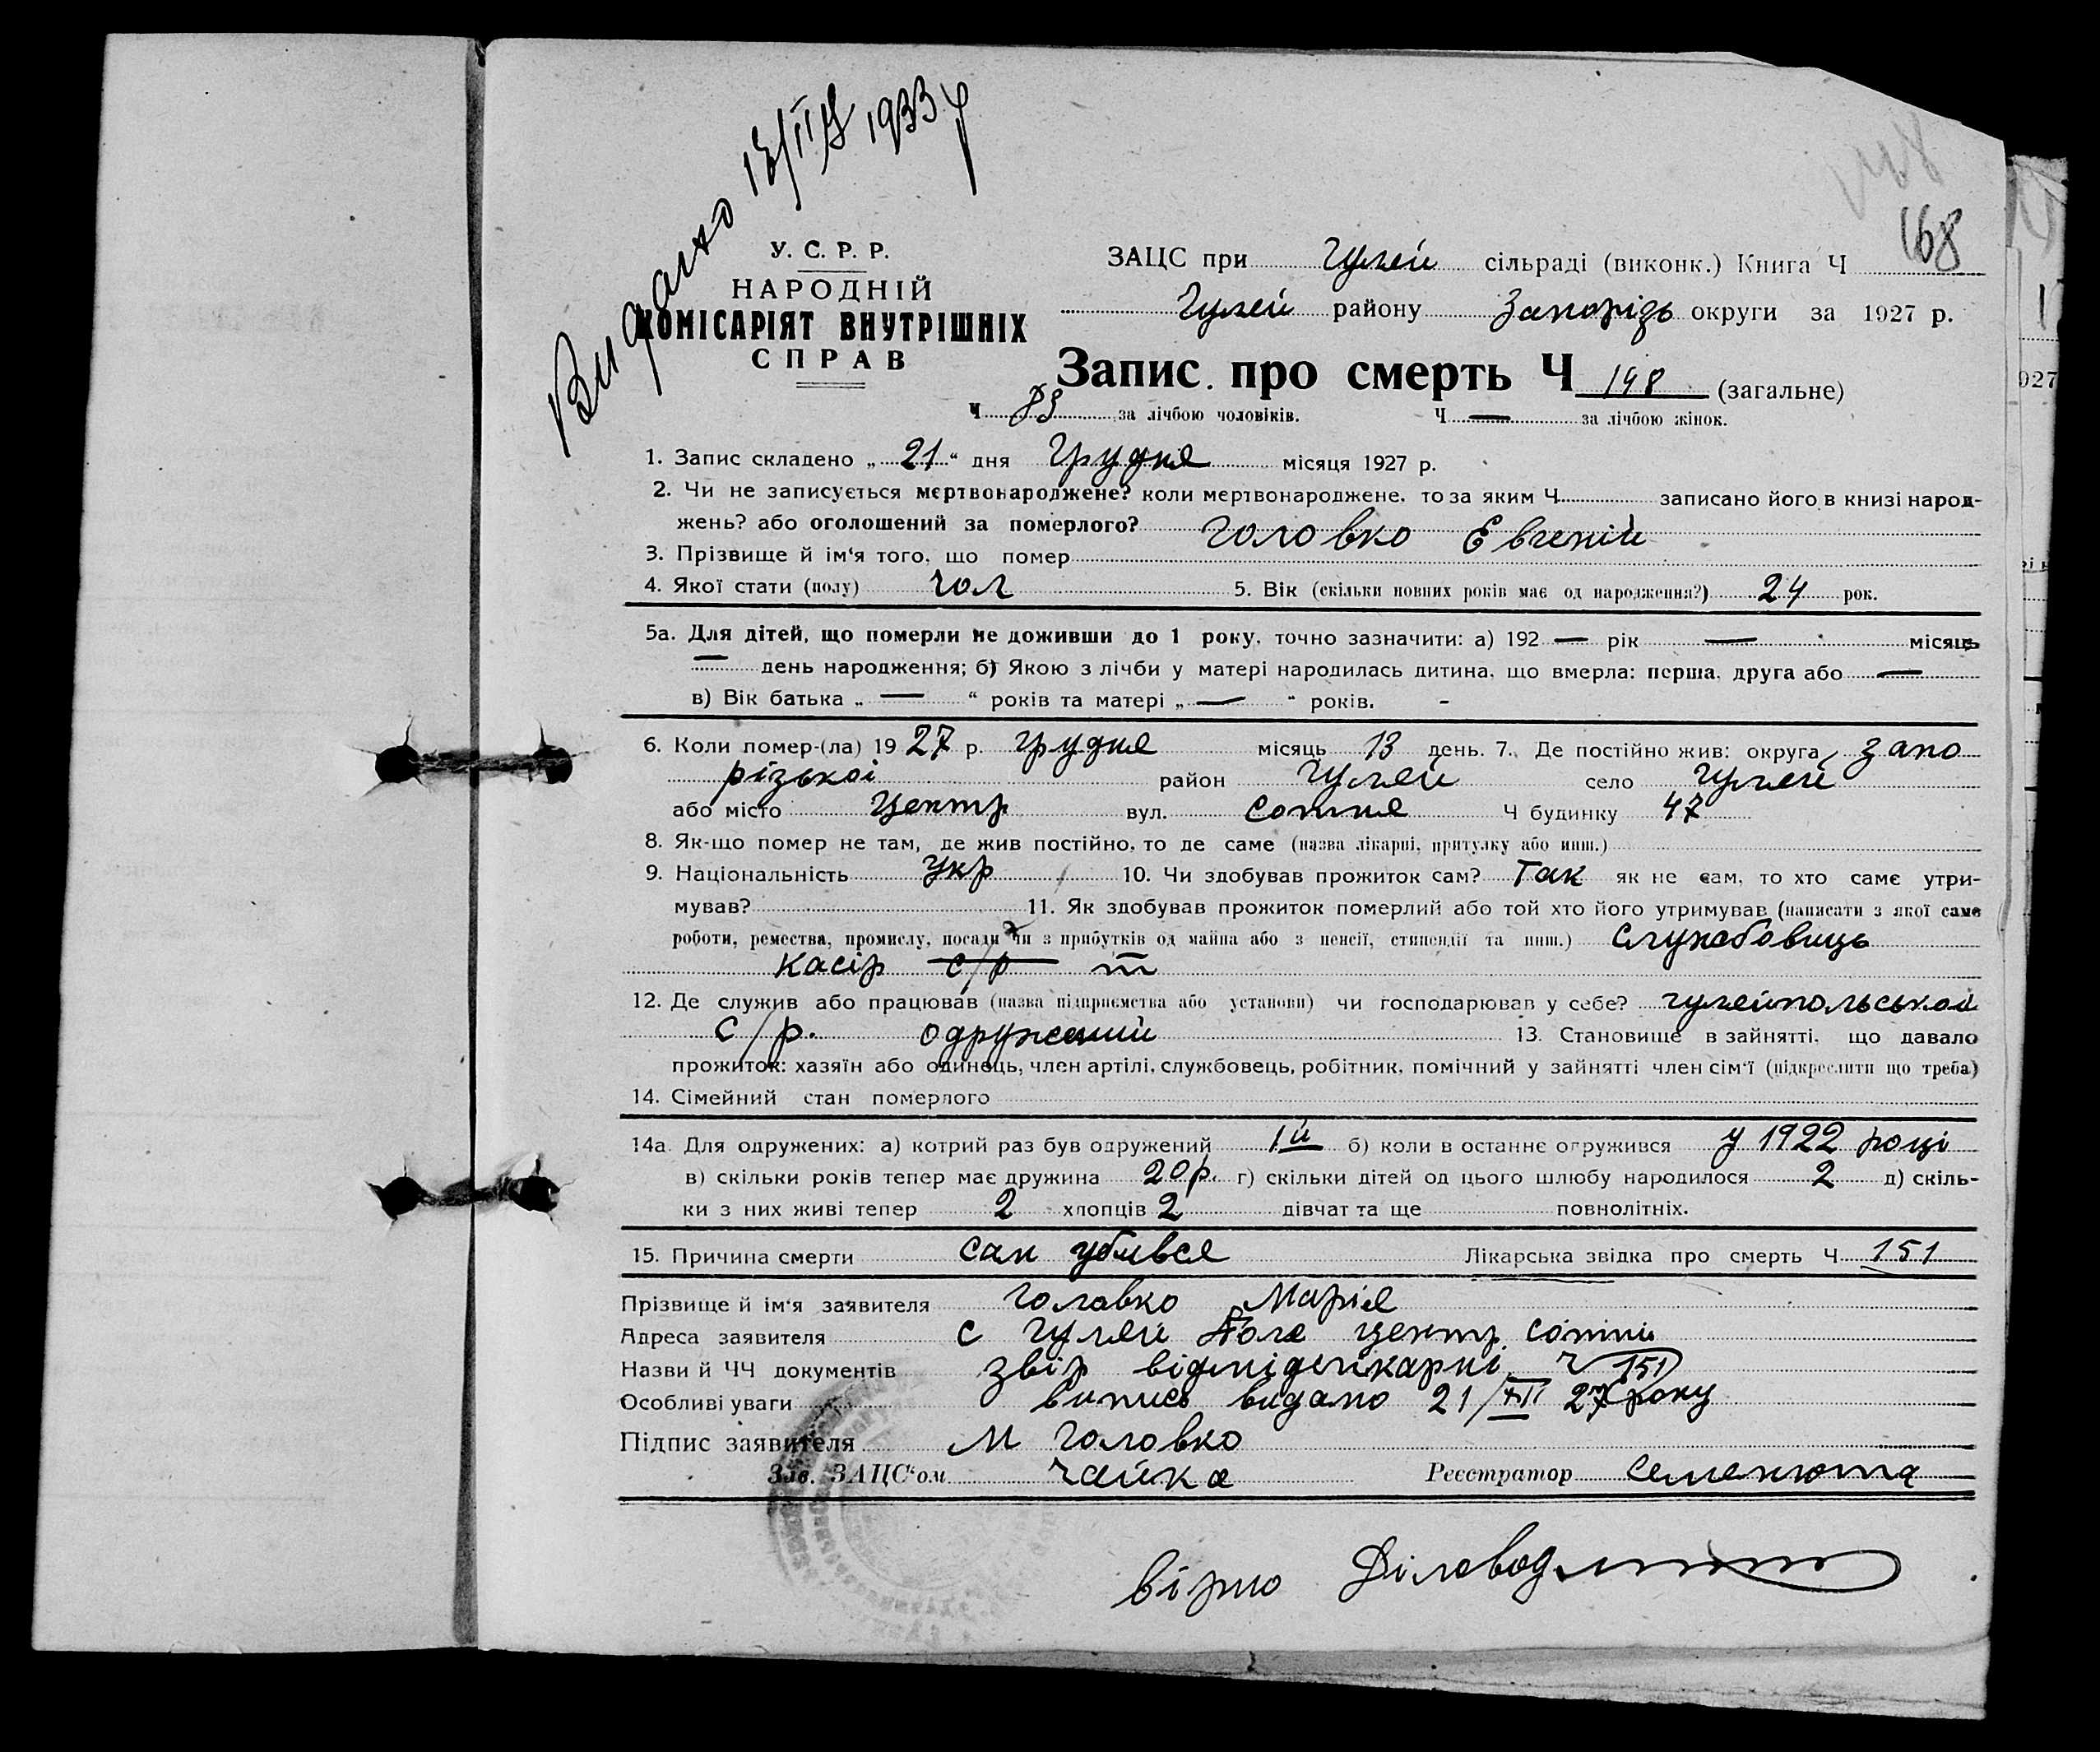 Видано 13/IIV 1933 р
168
У. С. Р. Р.
НАРОДНІЙ
КОМІСАРІЯТ ВНУТРІШНІХ
СПРАВ
ЗАЦС при Гуляй сільраді (виконк.) Книга Ч
Гуляй району Запоріз округи за 1927 р.
Запис про смерть Ч 148 (загальне)
Ч за лічбою чоловіків. Ч — за лічбою жінок.
1. Запис складено „ 21 “ дня Грудня місяця 1927 р.
2. Чи не записується мертвонароджене? коли мертвонароджене, то за яким Ч записано його в книзі народ-
жень? або оголошений за померлого?
3. Прізвище й ім‘я того, що помер Головко Евгеній
4. Якої стати (полу) чол 5. Вік (скільки повних років має од народження?) 24 рок.
5а. Для дітей, що померли не доживши до 1 року, точно зазначити: а) 192 — рік — місяць
— день народження; б) Якою з лічби у матері народилась дитина, що вмерла: перша, друга або —
в) Вік батька „ — “ років та матері „ — “ років.
6. Коли помер-(ла) 19 27 р. грудня місяць 13 день. 7. Де постійно жив: округа Запо
різькоі район Гуляй село Гуляй
або місто Центр вул. Сотня Ч будинку 47
8. Як-що помер не там, де жив постійно, то де саме (назва лікарні, притулку або инш.)
9. Національність Укр 10. Чи здобував прожиток сам? Так як не сам, то хто саме утри-
мував? 11. Як здобував прожиток померлий або той хто його утримував (написати з якої саме
роботи, ремества, промислу, посади чи з прибутків од майна або з пенсії, стипендії та инш.) Службовиць
Касір с/р
12. Де служив або працював (назва підприємства або установи) чи господарював у себе? Гуляйпольськоі
с/р. одружений 13. Становище в зайнятті, що давало
прожиток: хазяїн або одинець, член артілі, службовець, робітник, помічний у зайнятті член сім‘ї (підкреслити що треба)
14. Сімейний стан померлого
14а. Для одружених: а) котрий раз був одружений 1й б) коли в останнє одружився у 1922 році
в) скільки років тепер має дружина 20 р. г) скільки дітей од цього шлюбу народилося 2 д) скіль-
ки з них живі тепер 2 хлопців 2 дівчат та ще повнолітніх.
15. Причина смерти Сам убився Лікарська звідка про смерть Ч 151
Прізвище й ім‘я заявителя Головко Марія
Адреса заявителя с Гуляй Поле центр Сотня
Назви й ЧЧ документів ч 151
Особливі уваги випись видано 21/XII 27 року
Підпис заявителя М Головко
Зав. ЗАЦС‘ом Чайка Реєстратор Семенюта
Вірно Діловод